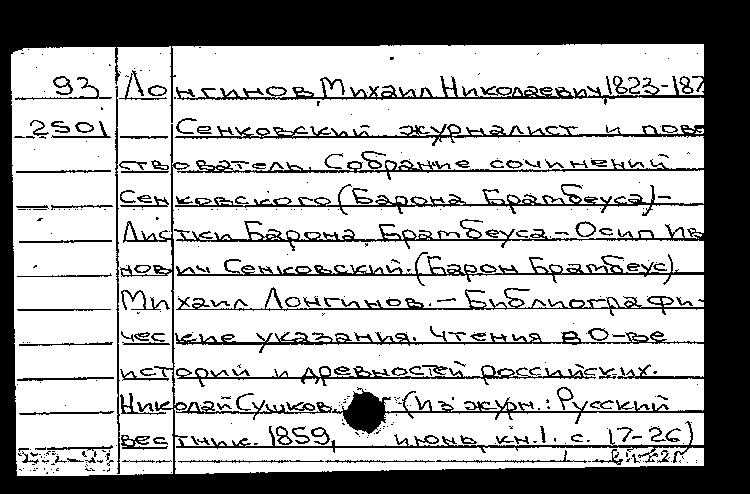 93 Лонгинов, Михаил Николаевич, 1823-187
2501 Сенковский журналист и пове
ствователь. Собрание сочинений
Сенковского (Барона Брамбеуса)-
Листки Барона Брамбеуса - Осип Ив
нович Сенковский. (Барон Брамбеус).
Михаил Лонгинов. - Библиографи-
ческие указания. Чтения в О-ве
истории и древностей российских.
Николай Сушков. (Из журн.: Русский
вестник. 1859, июнь, кн.1. с. 17-26)